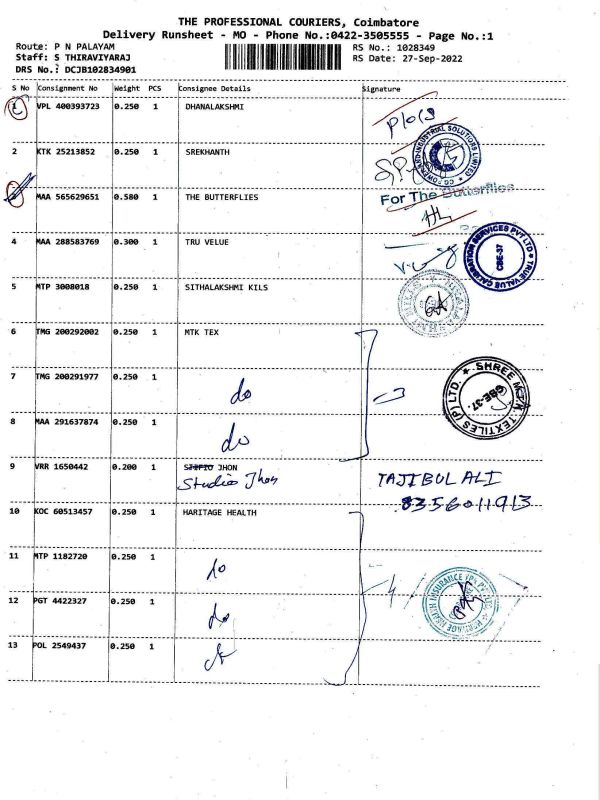 THE PROFESSIONAL COURIERS, Coimbatore
Delivery Runsheet - MO - Phone No.:0422-3505555 - Page No.:1
Route: P N PALAYAM RS No.: 1028349
Staff: S THIRAVIYARAJ RS Date: 27-Sep-2022
DRS No.: DCJB102834901
S No Consignment No Weight PCS Consignee Details Signature
1 VPL 400393723 0.250 1 DHANALAKSHMI
2 KTK 25213852 0.250 1 SREKHANTH
3 MAA 565629651 0.580 1 THE BUTTERFLIES For The Butterflies
4 MAA 288583769 0.300 1 TRU VELUE TRUE VALUE CALIBRATION SERVICES PVT LTD CBE-37
5 MTP 3008018 0.250 1 SITHALAKSHMI KILS
6 TMG 200292002 0.250 1 MTK TEX
7 TMG 200291977 0.250 1 do 3 SHREE M.T.K. TEXTILES (P) LTD. CBE-37.
8 MAA 291637874 0.250 1 do
9 VRR 1650442 0.200 1 STIFIO JHON
Studio Jhon TAJIBUL ALI
8356011913
10 KOC 60513457 0.250 1 HARITAGE HEALTH
11 MTP 1182720 0.250 1 do 4
12 PGT 4422327 0.250 1 do
13 POL 2549437 0.250 1 do